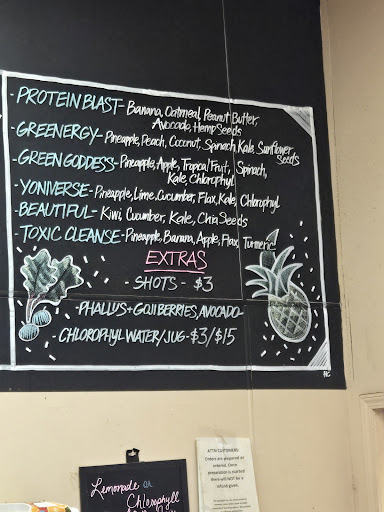 - PROTEIN BLAST- Banana, Oatmeal, Peanut Butter,
Avocado, Hemp Seeds
- GREENERGY- Pineapple, Peach, Coconut, Spinach, Kale, Sunflower
Seeds
- GREEN GODDESS- Pineapple, Apple, Tropical Fruit, Spinach,
Kale, Chlorophyl
- YONIVERSE- Pineapple, Lime, Cucumber, Flax, Kale, Chlorophyl
- BEAUTIFUL- Kiwi, Cucumber, Kale, Chia Seeds
- TOXIC CLEANSE- Pineapple, Banana, Apple, Flax, Turmeric
EXTRAS
- SHOTS - $3
- PHALLUS + GOJI BERRIES, AVOCADO-
- CHLOROPHYL WATER/JUG- $3/$15
ATTN CUSTOMERS
Orders are prepared as
ordered. Once
preparation is started
there will NOT be a
refund given.
Lemonade or
Chlorophyll